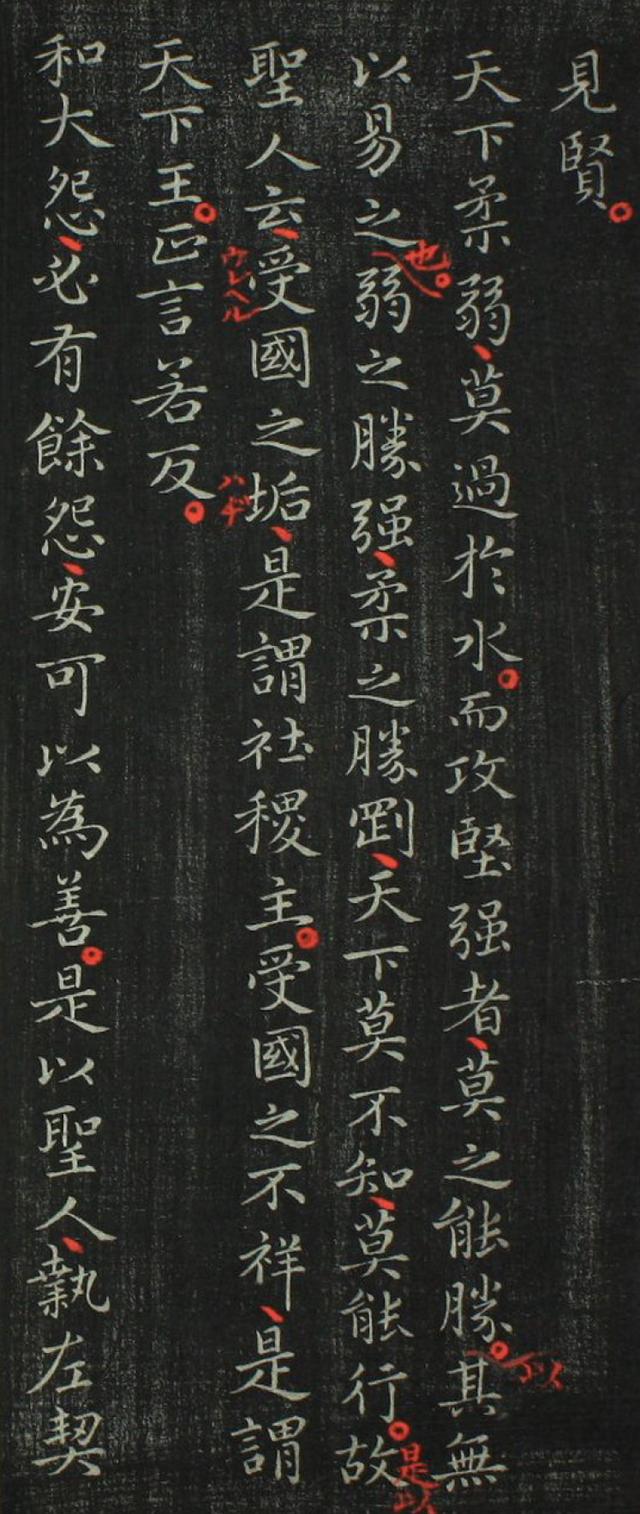 見賢。
天下柔弱、莫過於水。而攻堅强者、莫之能勝。其無
以易之弱之勝强、柔之勝剛、天下莫不知、莫能行。故
聖人云、受國之垢、是謂社稷主。受國之不祥、是謂
天下王。正言若反。
和大怨、必有餘怨、安可以為善。是以聖人、執左契
以
也。
是以
ウレヘル